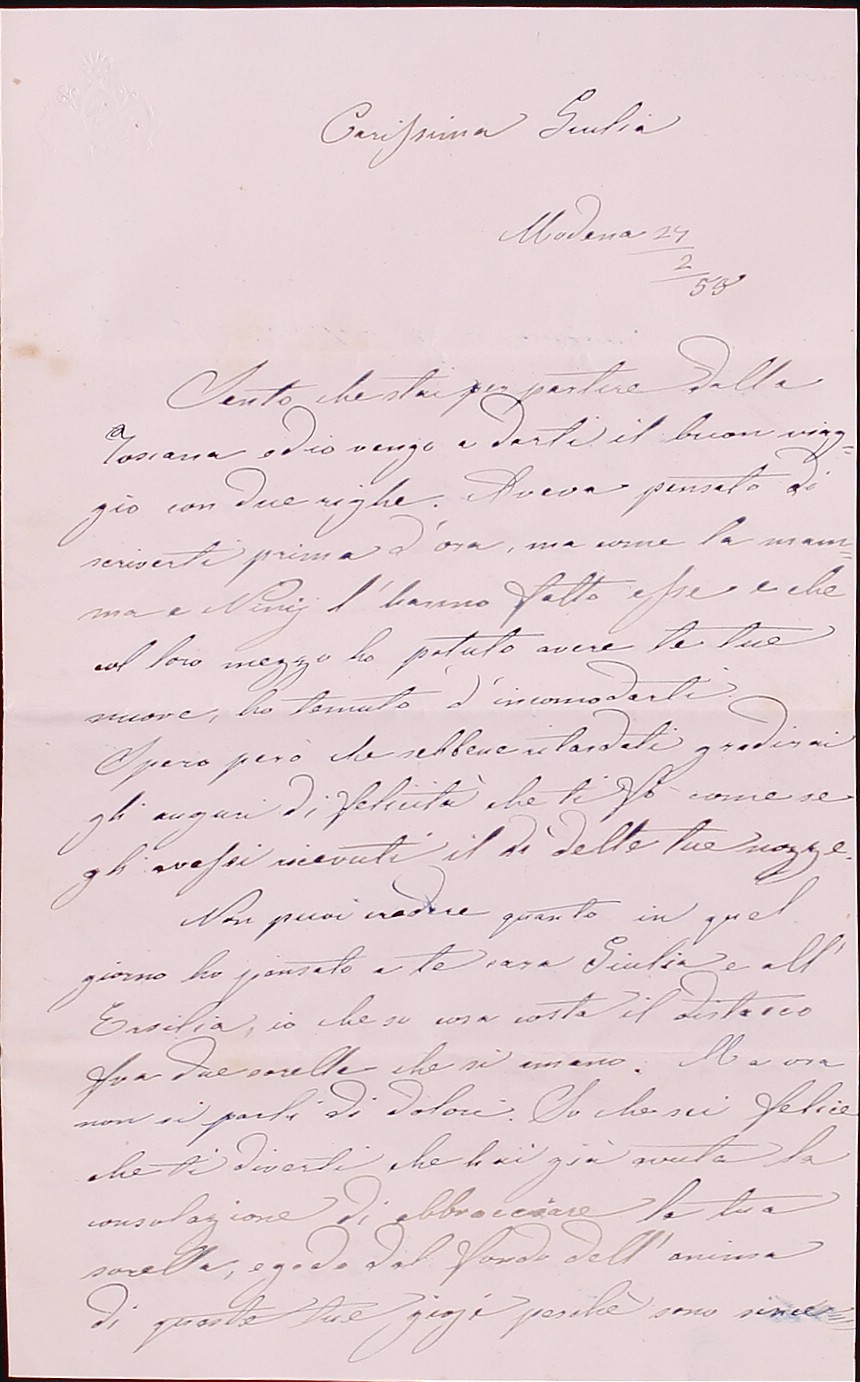 Carissima Giulia
Modena 27
2
58
Sento che stai per partire dalla
Toscana ed io vengo a darti il buon viag=
gio con due righe. Aveva pensato di
scriverti prima d'ora, ma come la mam=
ma e Niny l'hanno fatto esse e che
col loro mezzo ho potuto avere le tue
nuove, ho temuto d'incomodarti.
Spero però che sebbene ritardati gradirai
gli auguri di felicità che ti fò come se
gli avessi ricevuti il dì delle tue nozze.
Non puoi credere quanto in quel
giorno ho pensato a te cara Giulia e all'
Ersilia, io che so cosa costa il distacco
fra due sorelle che si amano. Ma ora
non si parli di dolori. So che sei felice
che ti diverti che hai già avuta la
consolazione di abbracciare la tua
sorella, e godo dal fondo dell'anima
di queste tue gioje perchè sono since=